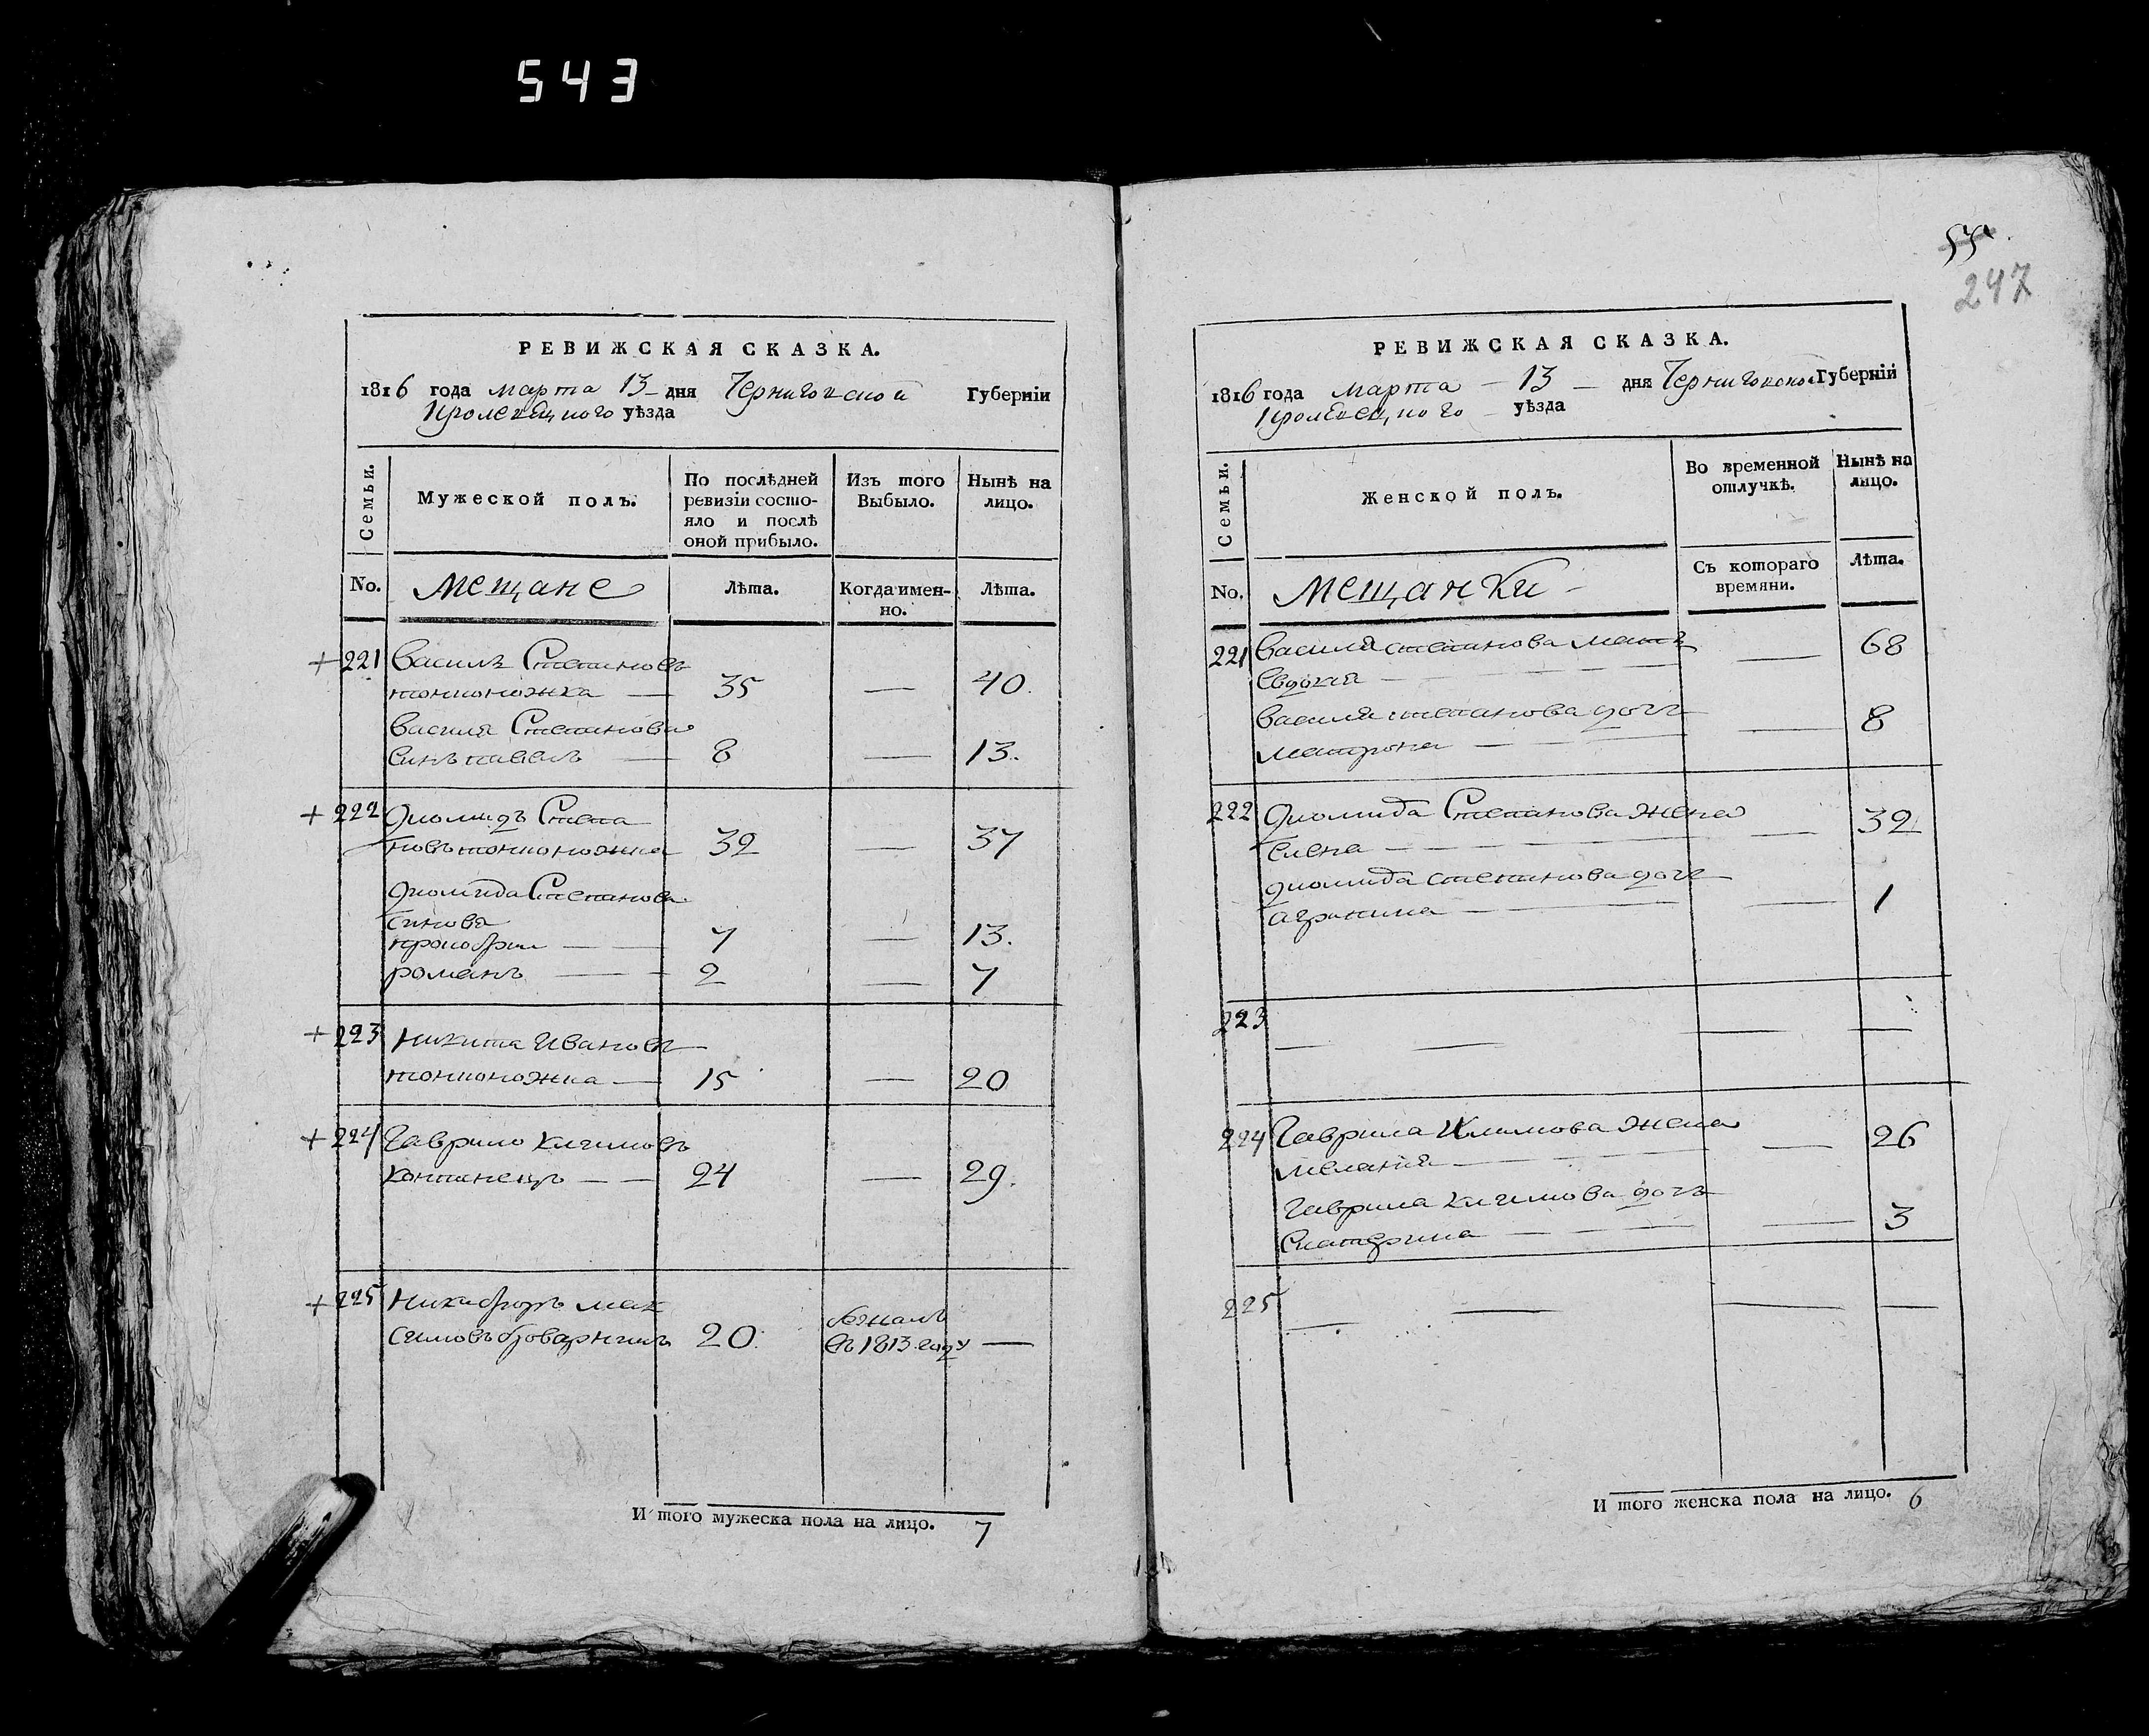 543
247
РЕВИЖСКАЯ СКАЗКА.
1816 года марта 13 дня Черниговской Губерніи
Кролевецкого уѣзда
Семьи.
Мужеской полъ.
По послѣдней ревизіи состо-
яло и послѣ
оной прибыло.
Изъ того
Выбыло.
Нынѣ на
лицо.
No. Мещане Лѣта. Когда имен-
но. Лѣта.
+ 221 Василь Степановъ
тонконожка — 35 — 40.
Василя Степанова
синъ павелъ — 8 — 13.
+ 222 Диомидъ Степа
новъ тонконожка 32 — 37
Диомида Степанова
синовя
прокофии — 7 — 13.
романъ — 2 — 7
+ 223 Никита Ивановъ
тонконожка — 15 — 20
+ 224 Гаврило Климовъ
24 — 29.
+ 225 Никифоръ мак
симовъ 20. бежалъ
въ 1813 году —
И того мужеска пола на лицо. 7
РЕВИЖСКАЯ СКАЗКА.
1816 года марта — 13 — дня Черниговской Губерніи
Кролевецкого уѣзда
Семьи.
Женской полъ.
Во временной
отлучкѣ.
Нынѣ на
лицо.
No. Мещанки Съ котораго
времяни. Лѣта.
221 Василя степанова мать
Евдокия — — 68
Василя степанова дочь
матрона — — 8
222 Диомида Степанова жена
Елена — — 32
диомида степанова дочь
агрипина — — 1
223 — — — —
224 Гаврила Климова жена
Мелания — — 26
Гаврила Климова дочь
Екатерина — — 3
225 — — —
И того женска пола на лицо. 6